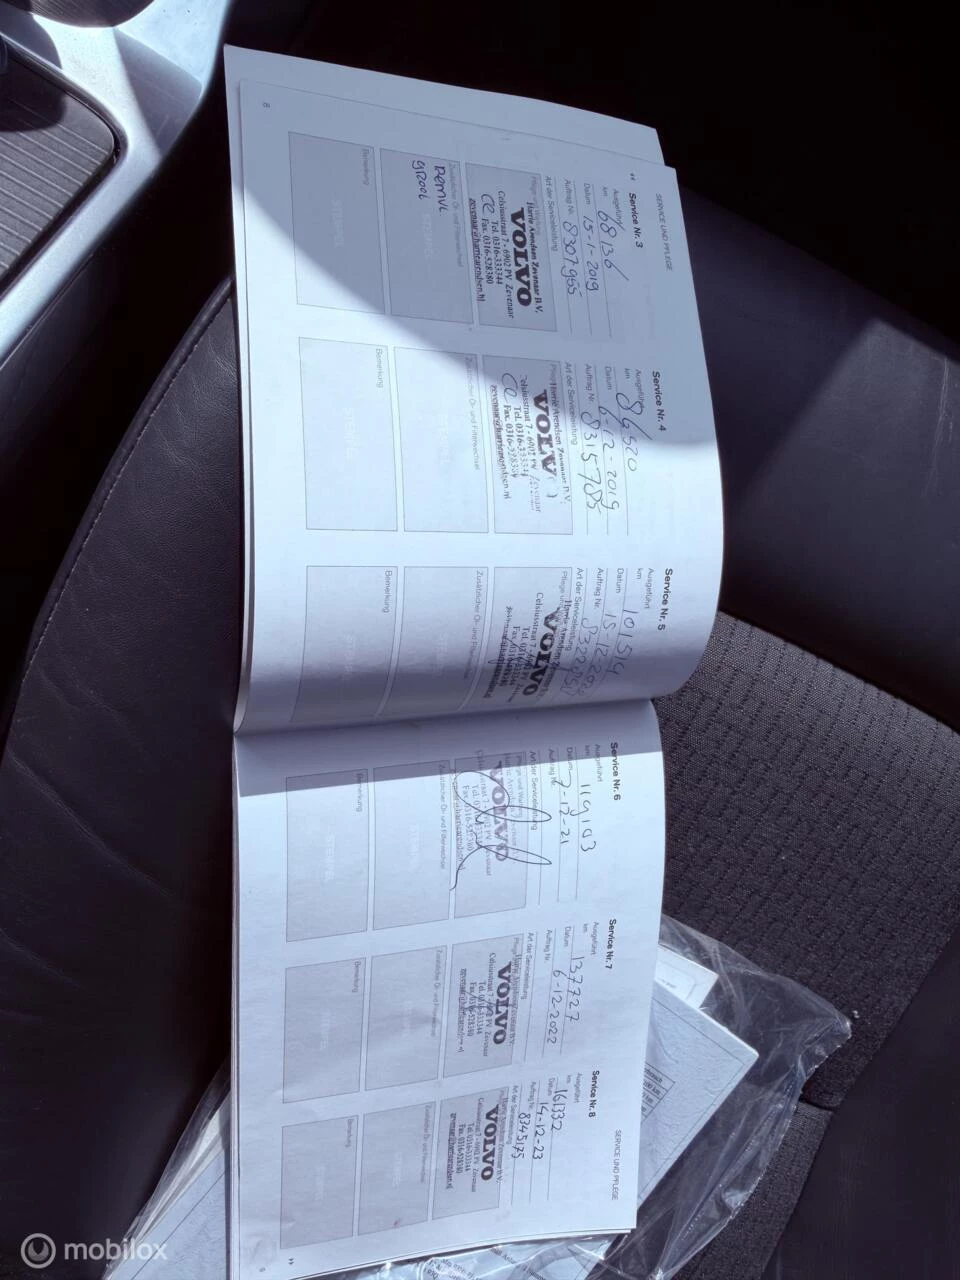 8
SERVICE UND PFLEGE
Service Nr. 3
Ausgeführt
km 68136
Datum 15-1-2019
Auftrag Nr. 8307955
Art der Serviceleistung
Harrie Arendsen Zevenaar B.V.
VOLVO
Celsiusstraat 7 - 6902 PV Zevenaar
Tel. 0316-333344
Fax. 0316-528380
zevenaar@harriearendsen.nl
Zusätzlicher Öl- und Filterwechsel
REMVL
STEMPEL
Bemerkung
STEMPEL
Service Nr. 4
Ausgeführt
km 86520
Datum 6-12-2019
Auftrag Nr. 8315785
Art der Serviceleistung
Harrie Arendsen Zevenaar B.V.
VOLVO
Celsiusstraat 7 - 6902 PV Zevenaar
Tel. 0316-333344
Fax. 0316-528380
zevenaar@harriearendsen.nl
Zusätzlicher Öl- und Filterwechsel
STEMPEL
Bemerkung
STEMPEL
Service Nr. 5
Ausgeführt
km 101514
Datum 15-12-2020
Auftrag Nr.
Art der Serviceleistung
VOLVO
Celsiusstraat 7
Tel. 0316-333344
Zusätzlicher Öl- und Filterwechsel
STEMPEL
Bemerkung
STEMPEL
Service Nr. 6
Ausgeführt
km 119103
Datum 7-12-21
Auftrag Nr.
Art der Serviceleistung
Pflege und Wartung
VOLVO
Zusätzlicher Öl- und Filterwechsel
STEMPEL
Bemerkung
STEMPEL
Service Nr. 7
Ausgeführt
km 137727
Datum 6-12-2022
Auftrag Nr.
Art der Serviceleistung
VOLVO
Celsiusstraat 7 - 6902 PV Zevenaar
Tel. 0316-333344
Fax. 0316-528380
zevenaar@harriearendsen.nl
Zusätzlicher Öl- und Filterwechsel
STEMPEL
Bemerkung
STEMPEL
SERVICE UND PFLEGE
Service Nr. 8
Ausgeführt
km 161332
Datum 14-12-23
Auftrag Nr. 8345175
Art der Serviceleistung
Harrie Arendsen Zevenaar B.V.
VOLVO
Celsiusstraat 7 - 6902 PV Zevenaar
Tel. 0316-333344
Fax. 0316-528380
zevenaar@harriearendsen.nl
Zusätzlicher Öl- und Filterwechsel
STEMPEL
Bemerkung
STEMPEL
9
mobilox